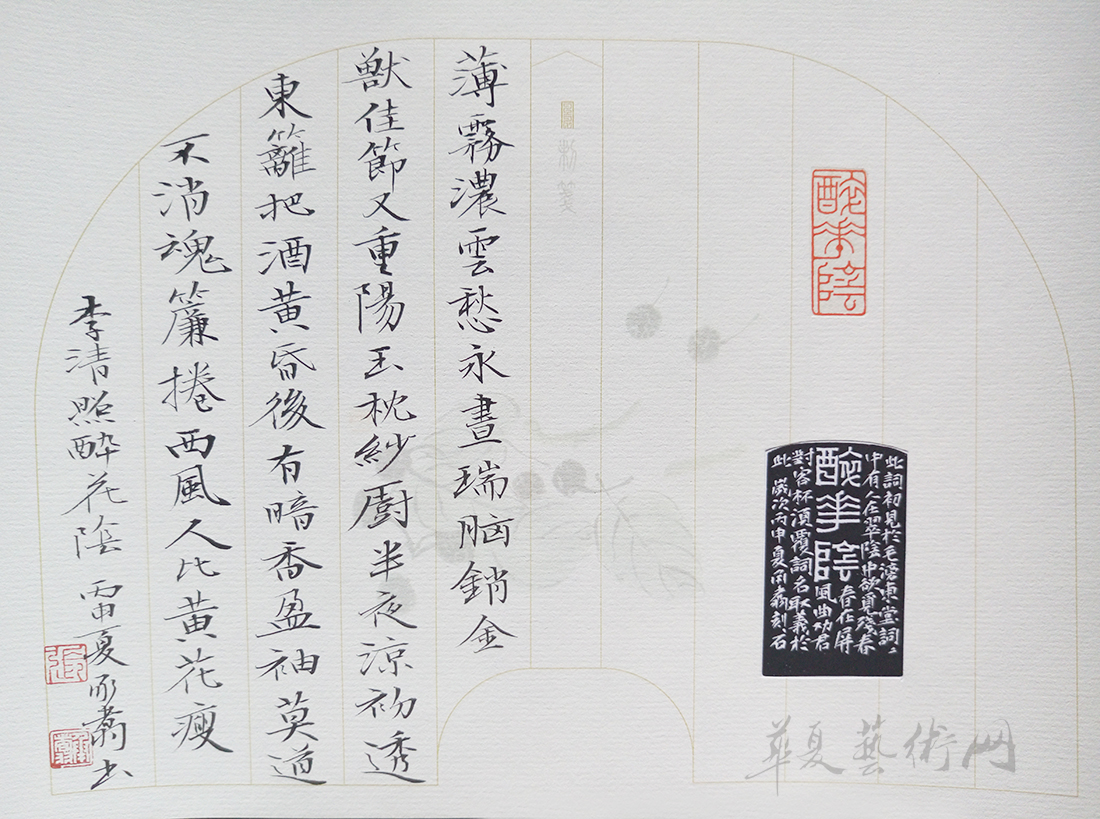 醉華陰
此詞初見於毛滂東堂詞〻
中有人在翠陰中欲覓殘春
醉華陰
春在屏
風曲勸君
對客杯須覆詞名取義於
此 歲次丙申夏刻石
薄霧濃雲愁永晝瑞脑銷金
獸佳節又重陽玉枕紗厨半夜涼初透
東籬把酒黄昏後有暗香盈袖莫道
不消魂簾捲西風人比黄花瘦
李清照醉花陰 夏书
華夏藝術网